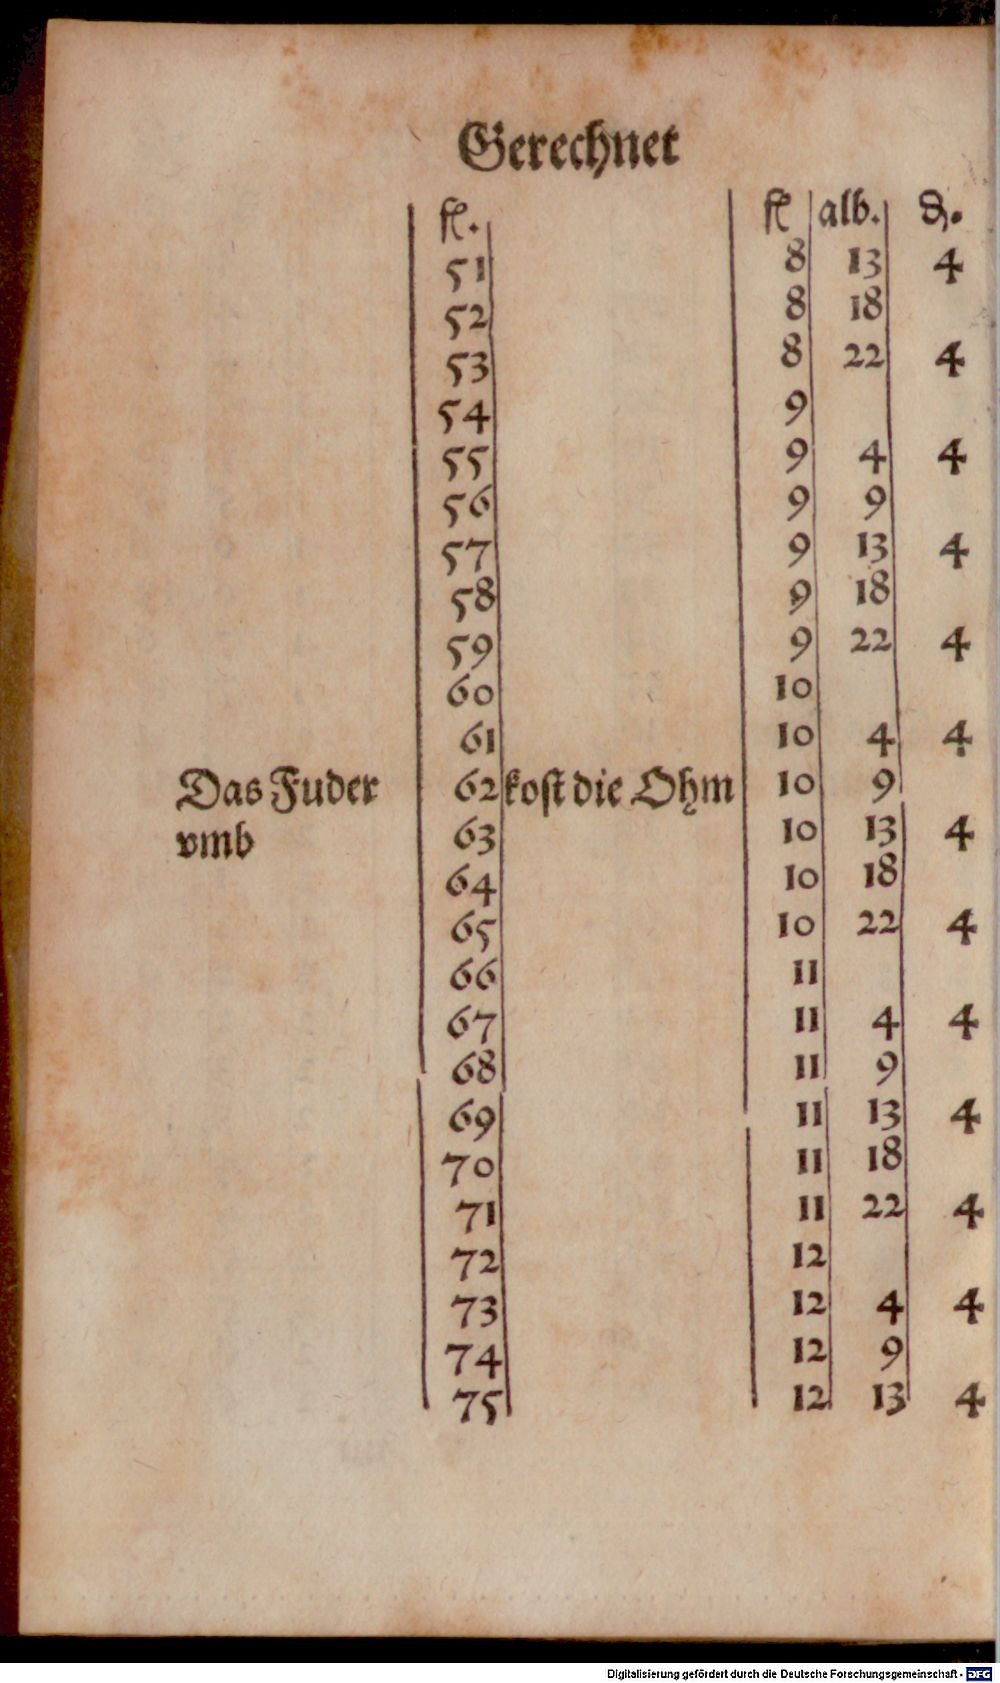 Gerechnet
fl. fl alb. ₰.
51 8 13 4
52 8 18
53 8 22 4
54 9
55 9 4 4
56 9 9
57 9 13 4
58 9 18
59 9 22 4
60 10
61 10 4 4
Das Fuder 62 kost die Ohm 10 9
vmb 63 10 13 4
64 10 18
65 10 22 4
66 11
67 11 4 4
68 11 9
69 11 13 4
70 11 18
71 11 22 4
72 12
73 12 4 4
74 12 9
75 12 13 4
Digitalisierung gefördert durch die Deutsche Forschungsgemeinschaft - DFG